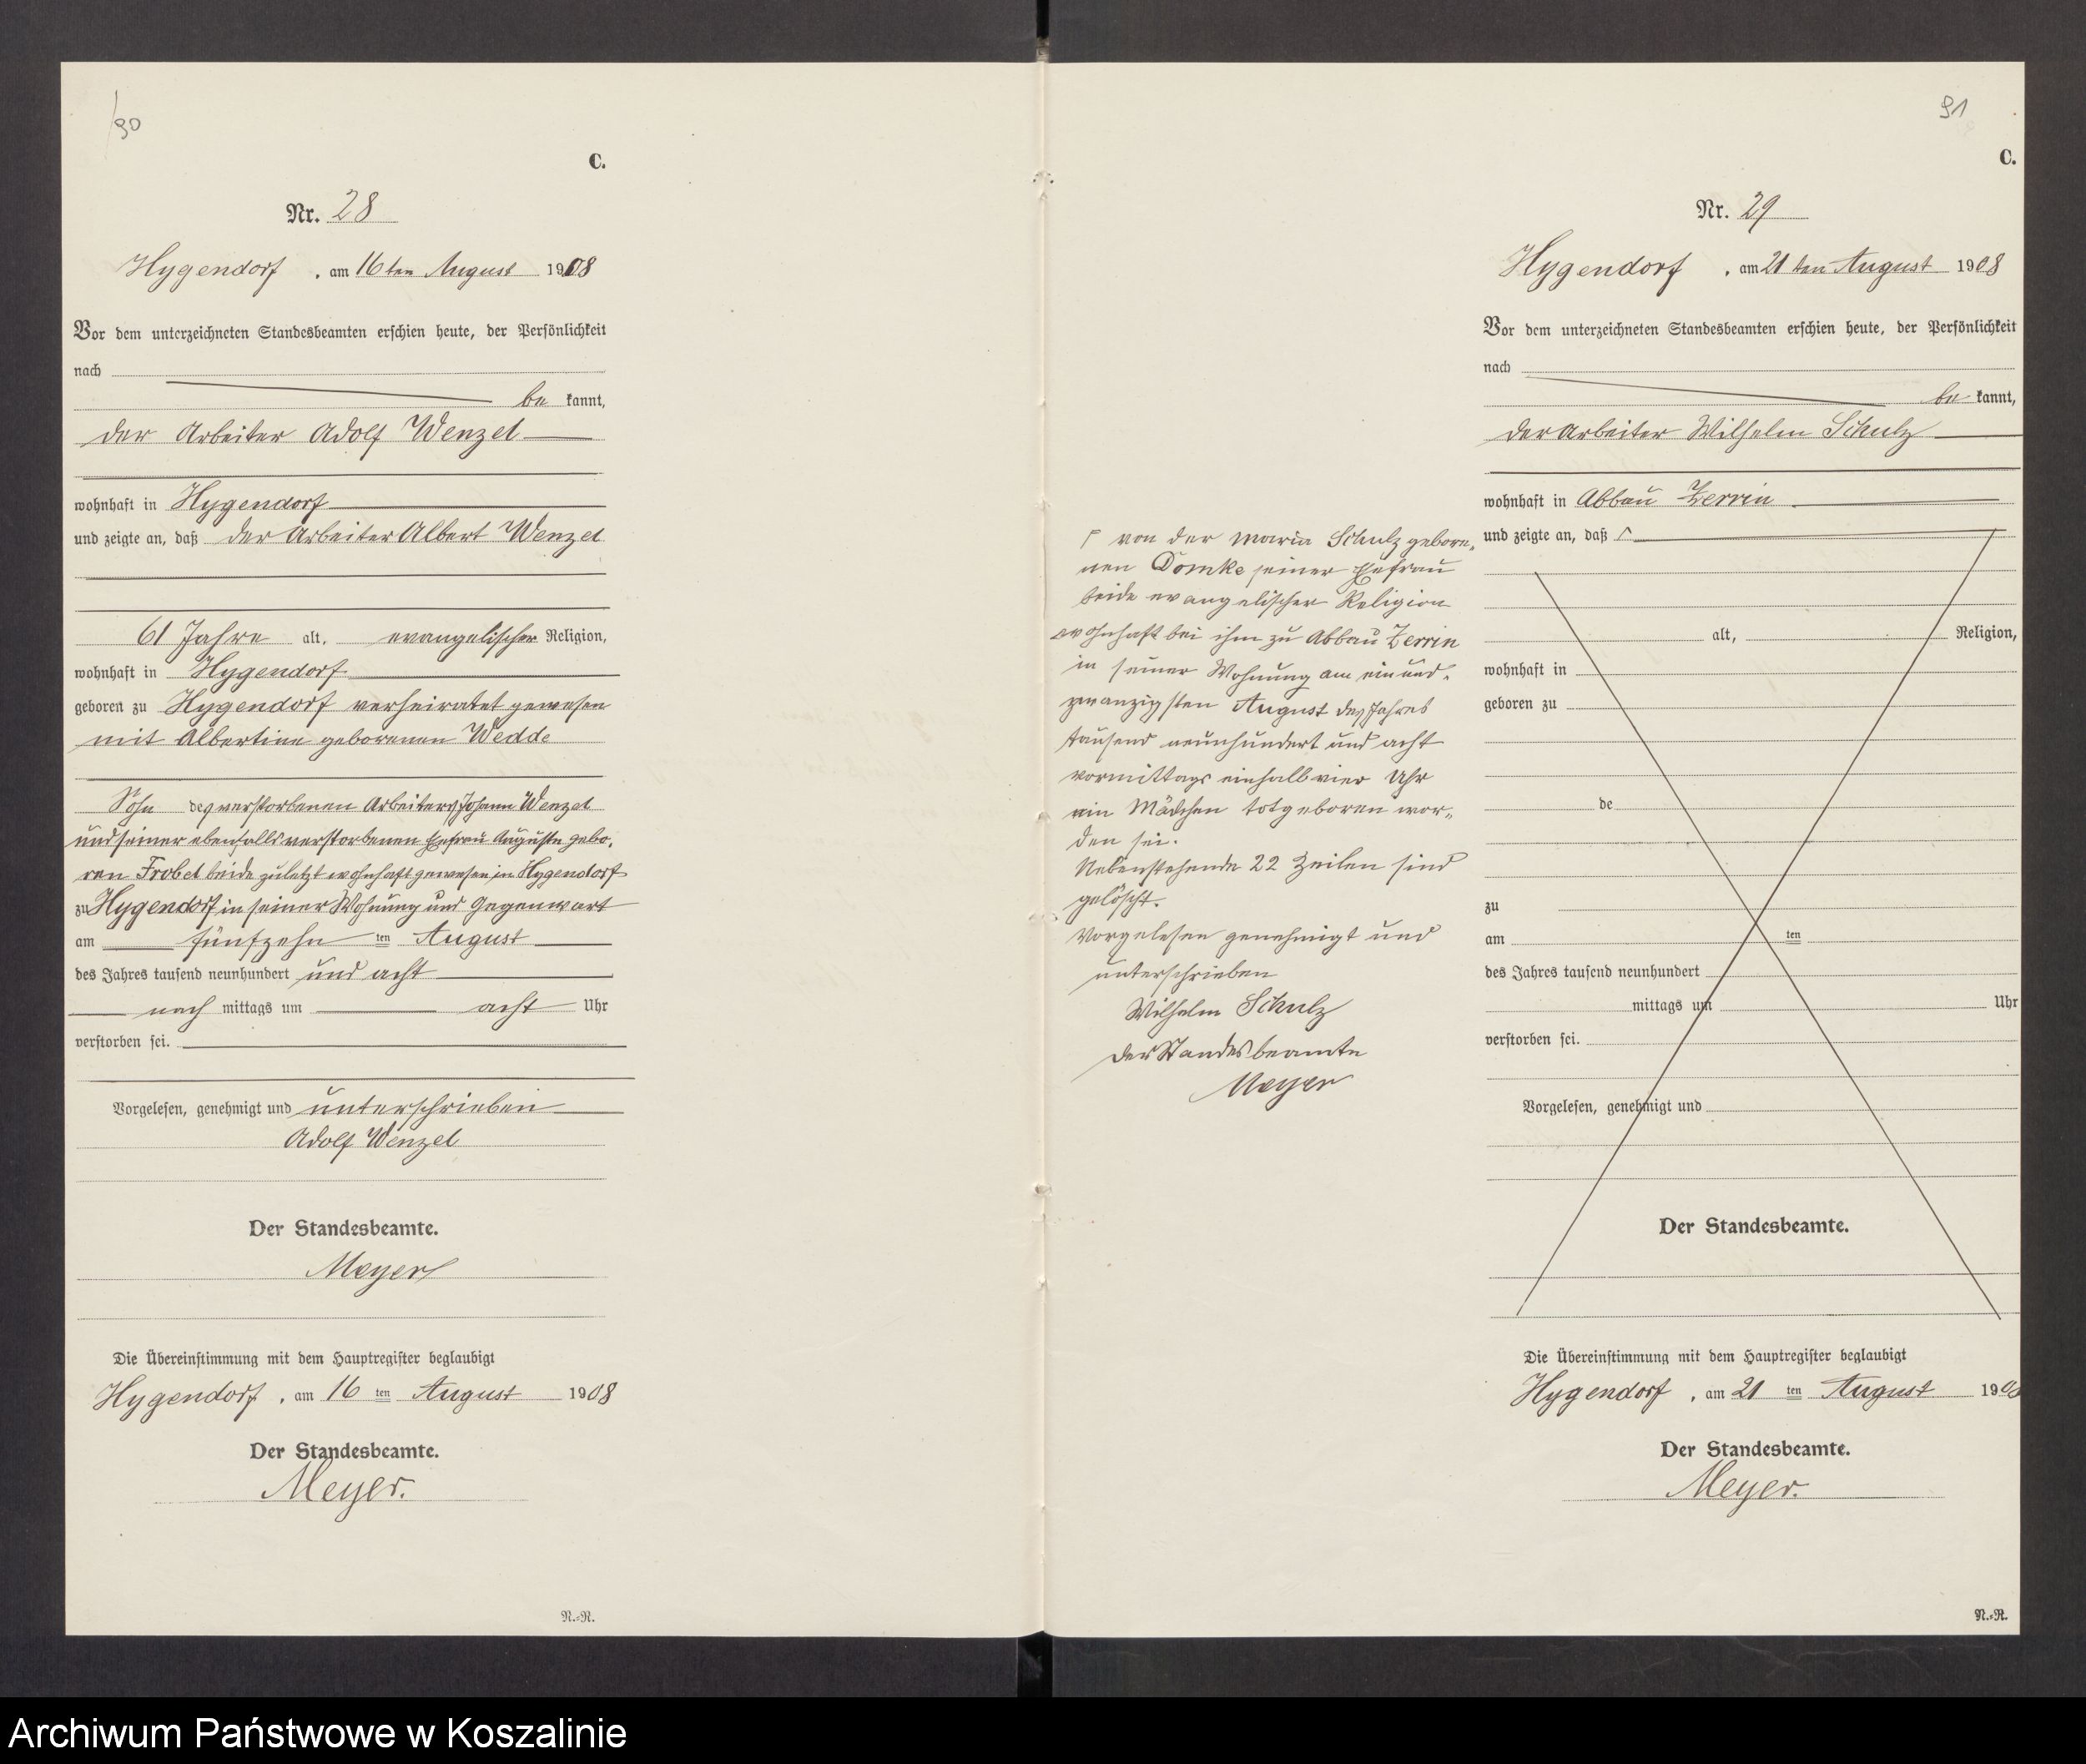 90
C.
Nr. 28
Hygendorf, am 16ten August 1908
Vor dem unterzeichneten Standesbeamten erschien heute, der Persönlichkeit
nach
be kannt,
der Arbeiter Adolf Wenzel
wohnhaft in Hygendorf
und zeigte an, daß der Arbeiter Albert Wenzel
61 Jahre alt, evangelischer Religion,
wohnhaft in Hygendorf
geboren zu Hygendorf verheiratet gewesen
mit Albertine geborenen Wedde
Sohn des verstorbenen Arbeiters Johann Wenzel
und seiner ebenfalls verstorbenen Ehefrau Auguste gebo-
ren Frobel beide zuletzt wohnhaft gewesen in Hygendorf
zu Hygendorf in seiner Wohnung und Gegenwart
am fünfzehn ten August
des Jahres tausend neunhundert und acht
nach mittags um acht Uhr
verstorben sei.
Vorgelesen, genehmigt und unterschrieben
Adolf Wenzel
Der Standesbeamte.
Meyer
Die Übereinstimmung mit dem Hauptregister beglaubigt
Hygendorf, am 16 ten August 1908
Der Standesbeamte.
Meyer.
N.-R.
91
C.
Nr. 29
Hygendorf, am 21 ten August 1908
Vor dem unterzeichneten Standesbeamten erschien heute, der Persönlichkeit
nach
be kannt,
der Arbeiter Wilhelm Schulz
wohnhaft in Abbau Zerrin
und zeigte an, daß Γ
alt, Religion,
wohnhaft in
geboren zu
de
zu
am ten
des Jahres tausend neunhundert
mittags um Uhr
verstorben sei.
Vorgelesen, genehmigt und
Der Standesbeamte.
Γ von der Maria Schulz gebore-
nen Domke seiner Ehefrau
beide evangelischer Religion
wohnhaft bei ihm zu Abbau Zerrin
in seiner Wohnung am ein und-
zwanzigsten August des Jahres
tausend neunhundert und acht
vormittags einhalb vier Uhr
ein Mädchen totgeboren wor-
den sei.
Nebenstehende 22 Zeilen sind
gelöscht.
Vorgelesen genehmigt und
unterschrieben
Wilhelm Schulz
Der Standesbeamte
Meyer
Die Übereinstimmung mit dem Hauptregister beglaubigt
Hygendorf, am 21 ten August 1908
Der Standesbeamte.
Meyer.
N.-R.
Archiwum Państwowe w Koszalinie